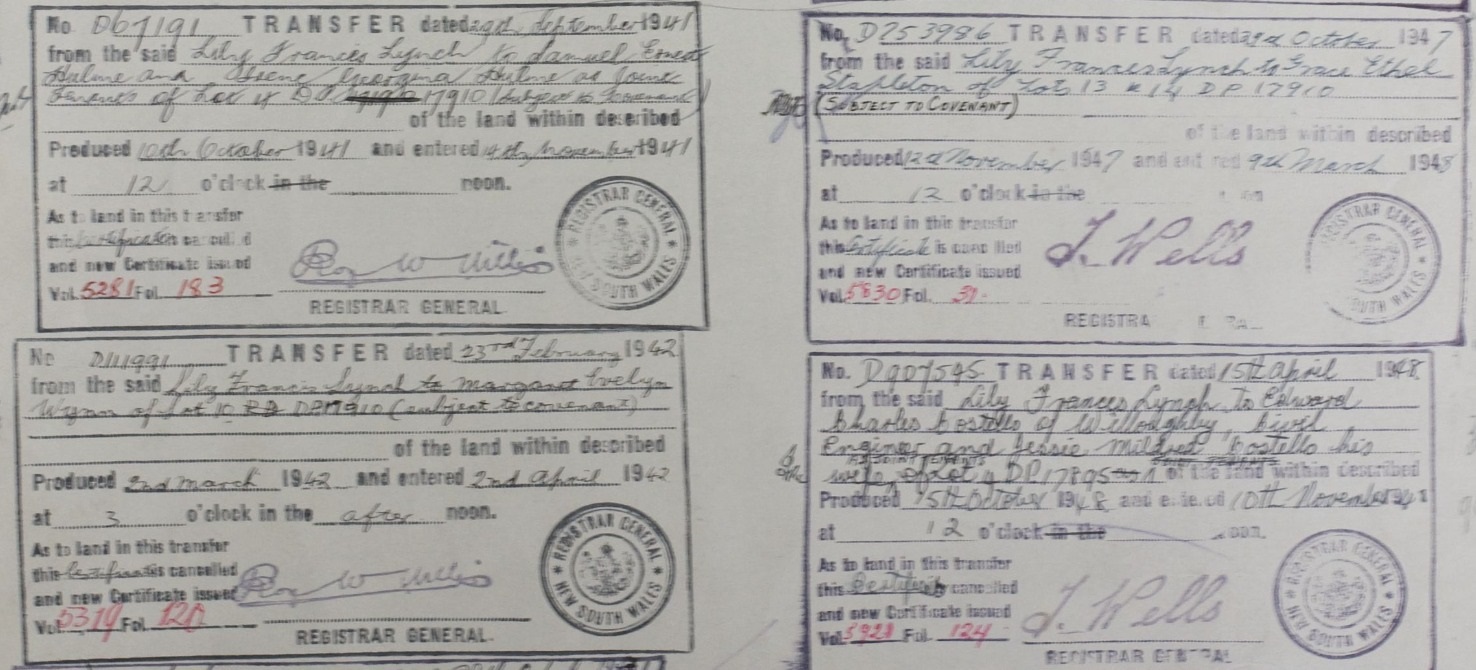 No. D67191 TRANSFER dated September 1941
from the said Lily Frances Lynch to Samuel Ernest
Hulme and Georgina Hulme as Joint
tenants of Lot DP 17910 (subject to Covenant)
of the land within described
Produced 10th October 1941 and entered 14th November 1941
at 12 o'clock in the noon.
As to land in this transfer
this Certificate is cancelled
and new Certificate issued
Vol. 5281 Fol. 183
REGISTRAR GENERAL
REGISTRAR GENERAL
NEW SOUTH WALES
No TRANSFER dated 23rd February 1942
from the said Lily Francis Lynch to Margaret Evelyn
Wynn of Lot 10 DP17910 (subject to covenant)
of the land within described
Produced 2nd March 1942 and entered 2nd April 1942
at 3 o'clock in the after noon.
As to land in this transfer
this Certificate is cancelled
and new Certificate issued
Vol. 5319 Fol. 120
REGISTRAR GENERAL.
REGISTRAR GENERAL
NEW SOUTH WALES
No. D753986 TRANSFER dated October 1947
from the said Lily Frances Lynch to Grace Ethel
Stapleton of Lots 13 & 14 DP 17910
(SUBJECT TO COVENANT)
of the land within described
Produced 12th November 1947 and entered 9th March 1948
at 12 o'clock in the
As to land in this transfer
this Certificate is cancelled
and new Certificate issued
Vol. 5830 Fol. 31
J. Wells
REGISTRAR GENERAL
NEW SOUTH WALES
No. D907545 TRANSFER dated 15th April 1948
from the said Lily Frances Lynch to Edward
Charles Costello of Willoughby, Civil
Engineer and Jessie Mildred Costello his
wife, AS JOINT TENANTS of Lot 9 DP17895 of the land within described
Produced 15th October 1948 and entered 10th November
at 12 o'clock in the noon.
As to land in this transfer
this Certificate is cancelled
and new Certificate issued
Vol. 5921 Fol. 124
J. Wells
REGISTRAR GENERAL
REGISTRAR GENERAL
NEW SOUTH WALES